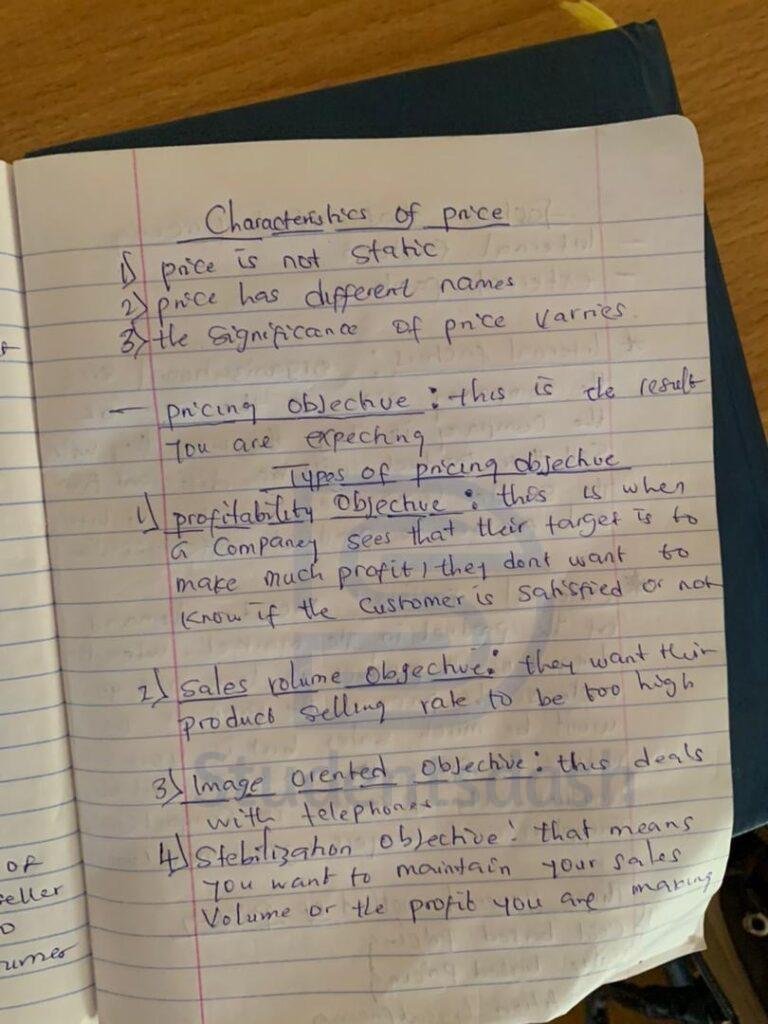 Characteristics of price
1) price is not static
2) price has different names
3) the significance of price varries
- pricing objective : this is the result
you are expecting
Types of pricing objective
1) profitability objective : this is when
a Companey sees that their target is to
make much profit, they dont want to
know if the customer is satisfied or not
2) Sales volume objective : they want their
product selling rate to be too high
3) Image orented objective : this deals
with telephones
4) Stebilization objective : that means
you want to maintain your sales
Volume or the profit you are making
of
seller
umer
Studentsdash